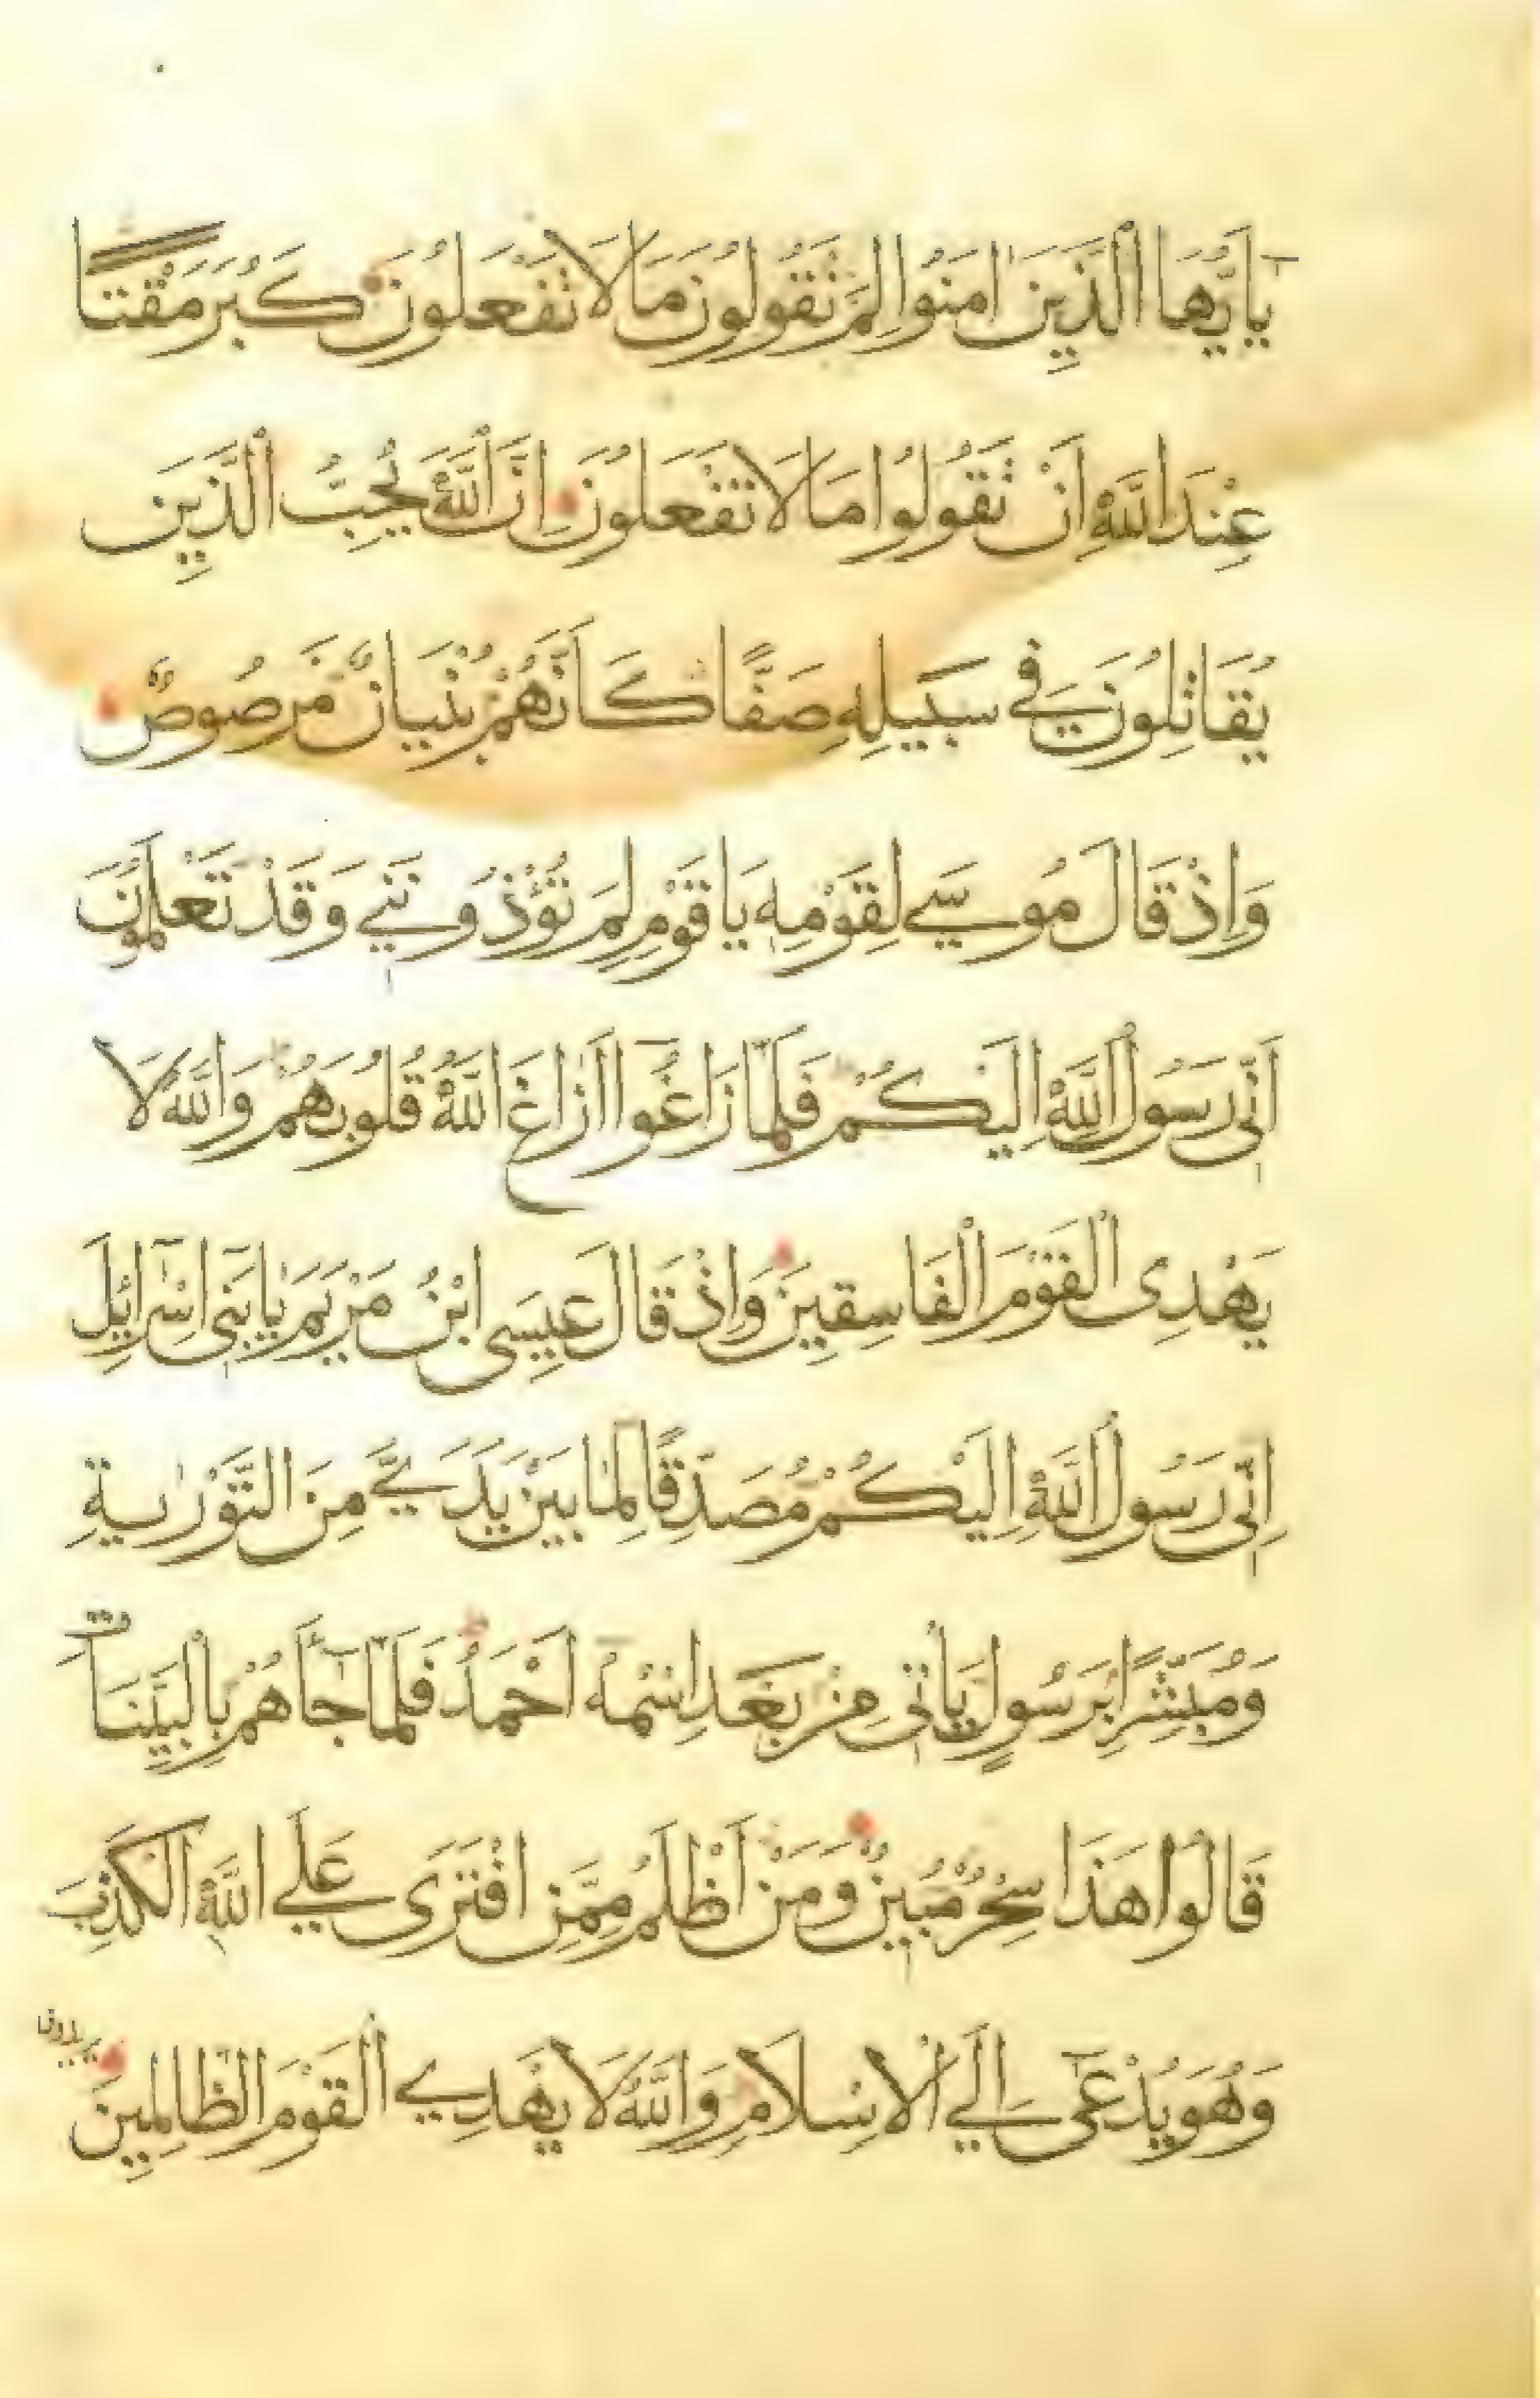 يَاأَيُّهَا الَّذِينَ اٰمَنُوا لِمَ تَقُولُونَ مَا لَا تَفْعَلُونَ كَبُرَ مَقْتًا
عِنْدَ اللَّهِ اَنْ تَقُولُوا مَا لَا تَفْعَلُونَ اِنَّ اللَّهَ يُحِبُّ الَّذِينَ
يُقَاتِلُونَ فِي سَبِيلِهِ صَفًّا كَاَنَّهُمْ بُنْيَانٌ مَرْصُوصٌ
وَاِذْ قَالَ مُوسَى لِقَوْمِهِ يَا قَوْمِ لِمَ تُؤْذُونَنِي وَقَدْ تَعْلَمُونَ
اَنِّي رَسُولُ اللَّهِ اِلَيْكُمْ فَلَمَّا زَاغُوا اَزَاغَ اللَّهُ قُلُوبَهُمْ وَاللَّهُ لَا
يَهْدِى الْقَوْمَ الْفَاسِقِينَ وَاِذْ قَالَ عِيسَى ابْنُ مَرْيَمَ يَابَنِي اِسْرَائِلَ
اِنِّي رَسُولُ اللَّهِ اِلَيْكُمْ مُصَدِّقًا لِمَا بَيْنَ يَدَيَّ مِنَ التَّوْرٰيةِ
وَمُبَشِّرًا بِرَسُولٍ يَأْتِى مِنْ بَعْدِ اسْمُهُ اَحْمَدُ فَلَمَّا جَاَهُمْ بِالْبَيِّنَاتِ
قَالُوا هَذَا سِحْرٌ مُبِينٌ وَمَنْ اَظْلَمُ مِمَّنِ افْتَرَى عَلَى اللَّهِ الْكَذِبَ
وَهُوَ يُدْعَى اِلَى الْاِسْلَامِ وَاللَّهُ لَا يَهْدِي الْقَوْمَ الظَّالِمِينَ
يريدون